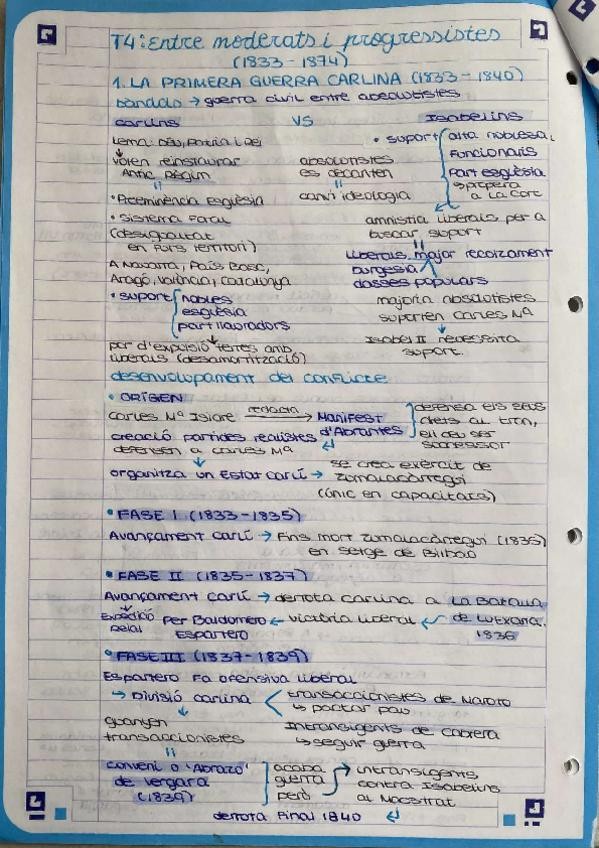 T4: Entre moderats i progressistes
(1833 - 1874)
1. LA PRIMERA GUERRA CARLINA (1833 - 1840)
bàndols → guerra civil entre absolutistes
carlins VS Isabelins
Lema: Déu, Pàtria i Rei
volen reinstaurar
Antic Règim
• Preeminència Església
• Sistema Foral
(desigualtat
en furs territori)
A Navarra, País Basc,
Aragó, València, Catalunya
• suport nobles
església
part llauradors
por d'expulsió terres amb
liberals (desamortització)
absolutistes
es decanten
canvi ideologia
• suport alta noblesa,
Funcionaris
Part església
↳ propera
a la Cort
amnistia liberals per a
buscar suport
liberals, major recolzament
burgesia
classes populars
majoria absolutistes
suporten Carles Mª
↓
Isabel II necessita
suport.
desenvolupament del conflicte
• ORÍGEN
Carles Mª Isidre redacta → Manifest
d'Abrantes
defensa els seus
drets al tron,
ell deu ser
successor
creació partides realistes
defensen a Carles Mª
organitza un Estat Carlí → se crea exèrcit de
Zumalacárregui
(únic en capacitats)
• FASE I (1833 - 1835)
Avançament Carlí → Fins mort Zumalacárregui (1835)
en Setge de Bilbao
• FASE II (1835 - 1837)
Avançament Carlí → derrota carlina a La Batalla
de Lutxana.
1836
Expedició
reial
per Baldomero ← victòria liberal ←
Espartero
• FASE III (1837 - 1839)
Espartero fa ofensiva liberal
→ Divisió carlina
transaccionistes de Maroto
↳ pactar pau
Intransigents de Cabrera
↳ seguir guerra
guanyen
transaccionistes
Conveni o 'Abrazo'
de Vergara
(1839)
acaba
guerra
però
intransigents
contra Isabelins
al Maestrat
derrota Final 1840